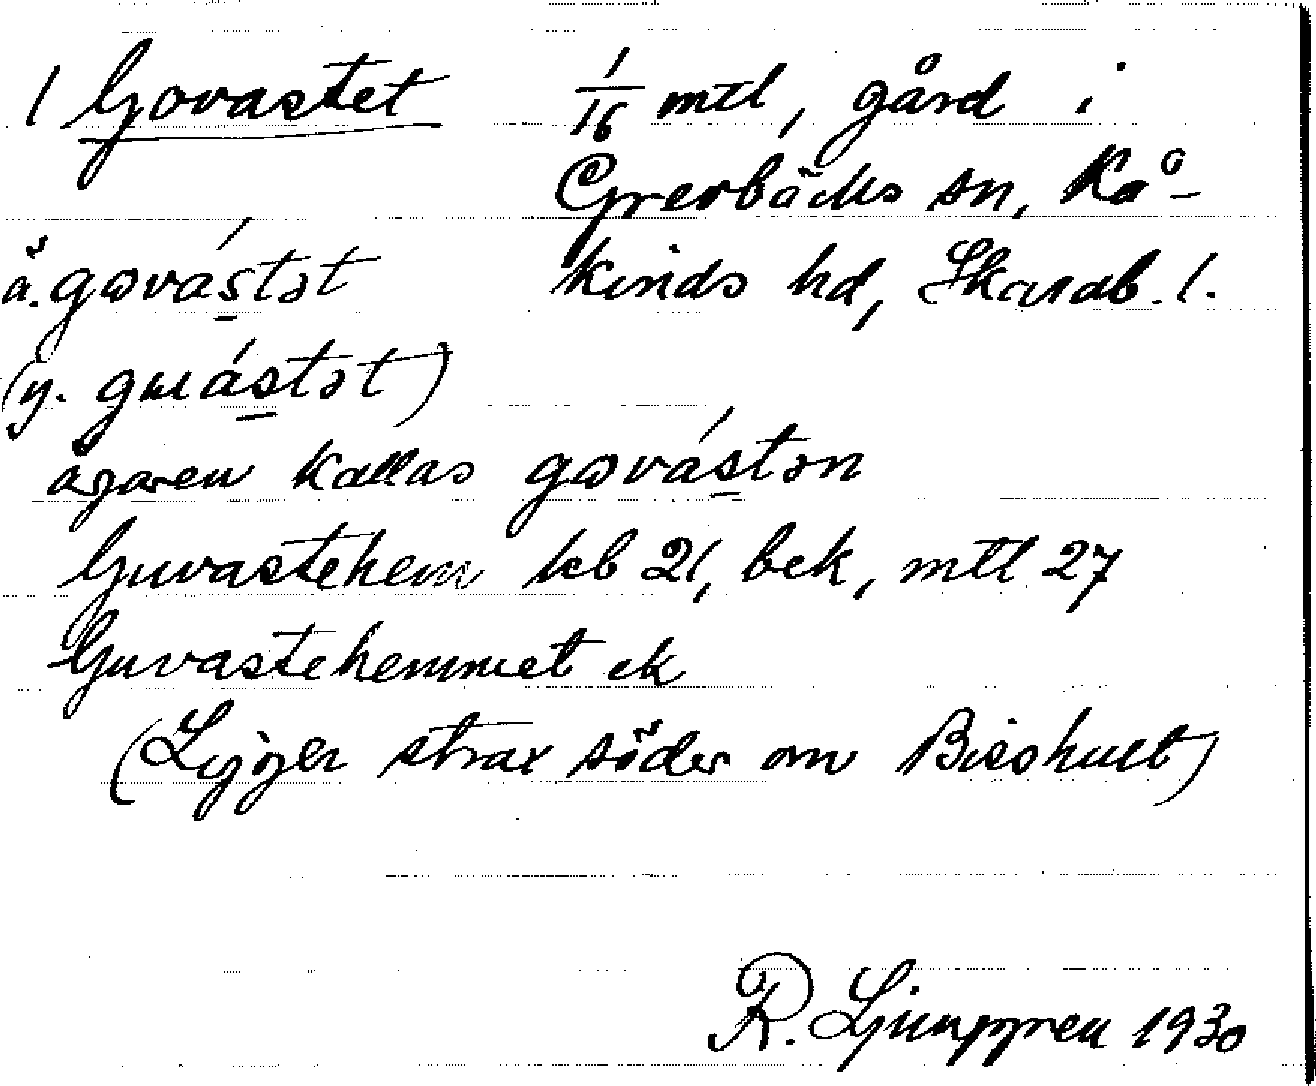 1 Govastet 1/16 mtl, gård i
Grevbäcks sn, Kå-
ä. gɷvást̠ət kinds hd, Skarab. l.
(y. guást̠ət)
ägaren kallas gɷvás̠tən
Guvastehem kb 21, bek, mtl 27
Guvastehemmet ek
(Ligger strax söder om Bisshult)
R. Ljunggren 1930